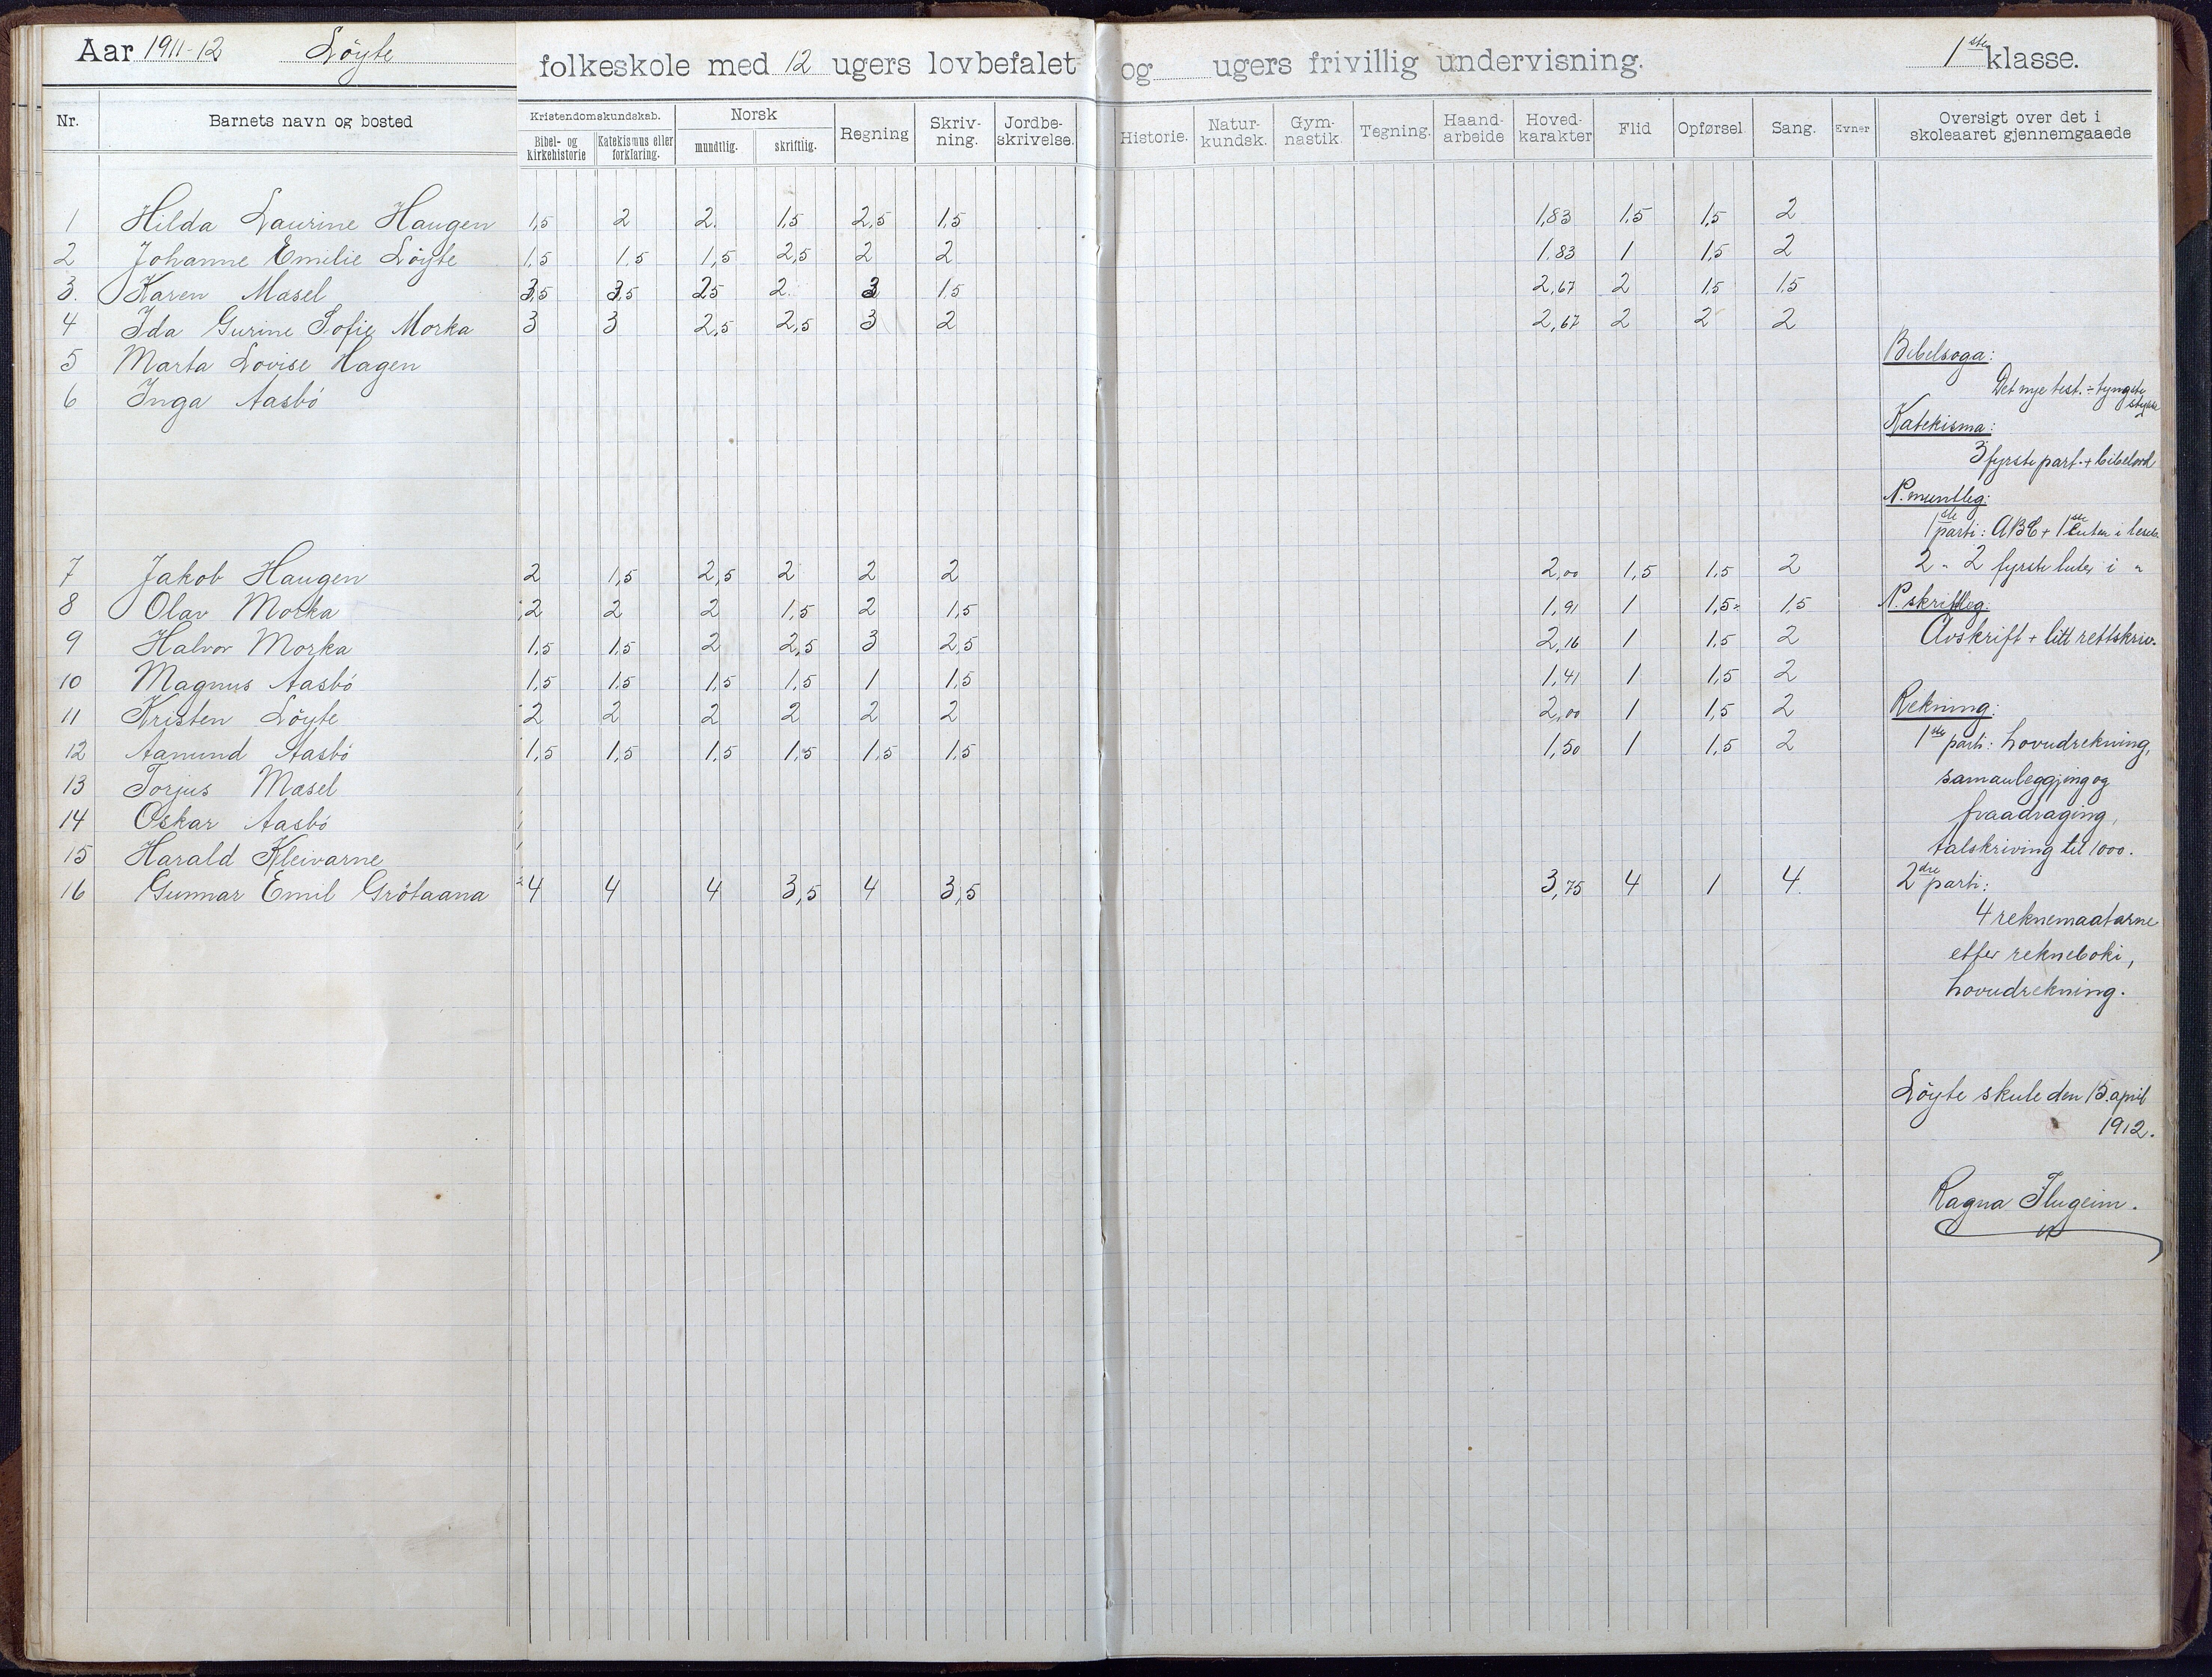 Aar 1911-12 Löyte folkeskole med 12 ugers lovbefalet og ugers frivillig undervisning. 1ste klasse.
Nr. Barnets navn og bosted Kristendomskundskab. Bibel- og kirkehistorie Katekismus eller forklaring. Norsk mundtlig. skriftlig. Regning Skriv-ning. Jordbe-skrivelse. Historie. Natur-kundsk. Gym-nastik. Tegning. Haand-arbeide Hoved-karakter Flid Opførsel. Sang. Evner Oversigt over det i skoleaaret gjennemgaaede
1 Hilda Laurine Haugen 1,5 2 2. 1,5 2,5 1,5 1,83 1,5 1,5 2
2 Johanne Emilie Löyte 1,5 1,5 1,5 2,5 2 2 1,83 1 1,5 2
3. Karen Masel 3,5 3,5 2,5 2. 3 1,5 2,67 2 1,5 1,5
4 Ida Gurine Sofie Morka 3 3 2,5 2,5 3 2 2,67 2 2 2
5 Marta Lovise Hagen
6 Inga Aasbö
7 Jakob Haugen 2 1,5 2,5 2 2 2 2,00 1,5 1,5 2
8 Olav Morka 2 2 2 1,5 2 1,5 1,91 1 1,5 1,5
9 Halvor Morka 1,5 1,5 2 2,5 3 2,5 2,16 1 1,5 2
10 Magnus Aasbö 1,5 1,5 1,5 1,5 1 1,5 1,41 1 1,5 2
11 Kristen Löyte 2 2 2 2 2 2 2,00 1 1,5 2
12 Aanund Aasbö 1,5 1,5 1,5 1,5 1,5 1,5 1,50 1 1,5 2
13 Torjus Masel
14 Oskar Aasbö
15 Harald Kleivarne
16 Gunnar Emil Grötaana 4 4 4 3,5 4 3,5 3,75 4 1 4.
Bibelsoga:
Det nye test. ÷ tyngste
stykke
Katekisma:
3 fyrste part. + bibelord
N. muntleg:
1ste parti: ABC + 1ste luten i leseb.
2 " 2 fyrste luter i "
N. skriftleg:
Avskrift + litt rettskriv.
Rekning:
1ste parti: hovudrekning,
samanleggjing og
fraadraging,
talskriving til 1000.
2dre parti:
4 reknemaatarne
etter rekneboki,
hovudrekning.
Löyte skule den 15. april
1912.
Ragna Flugeim.